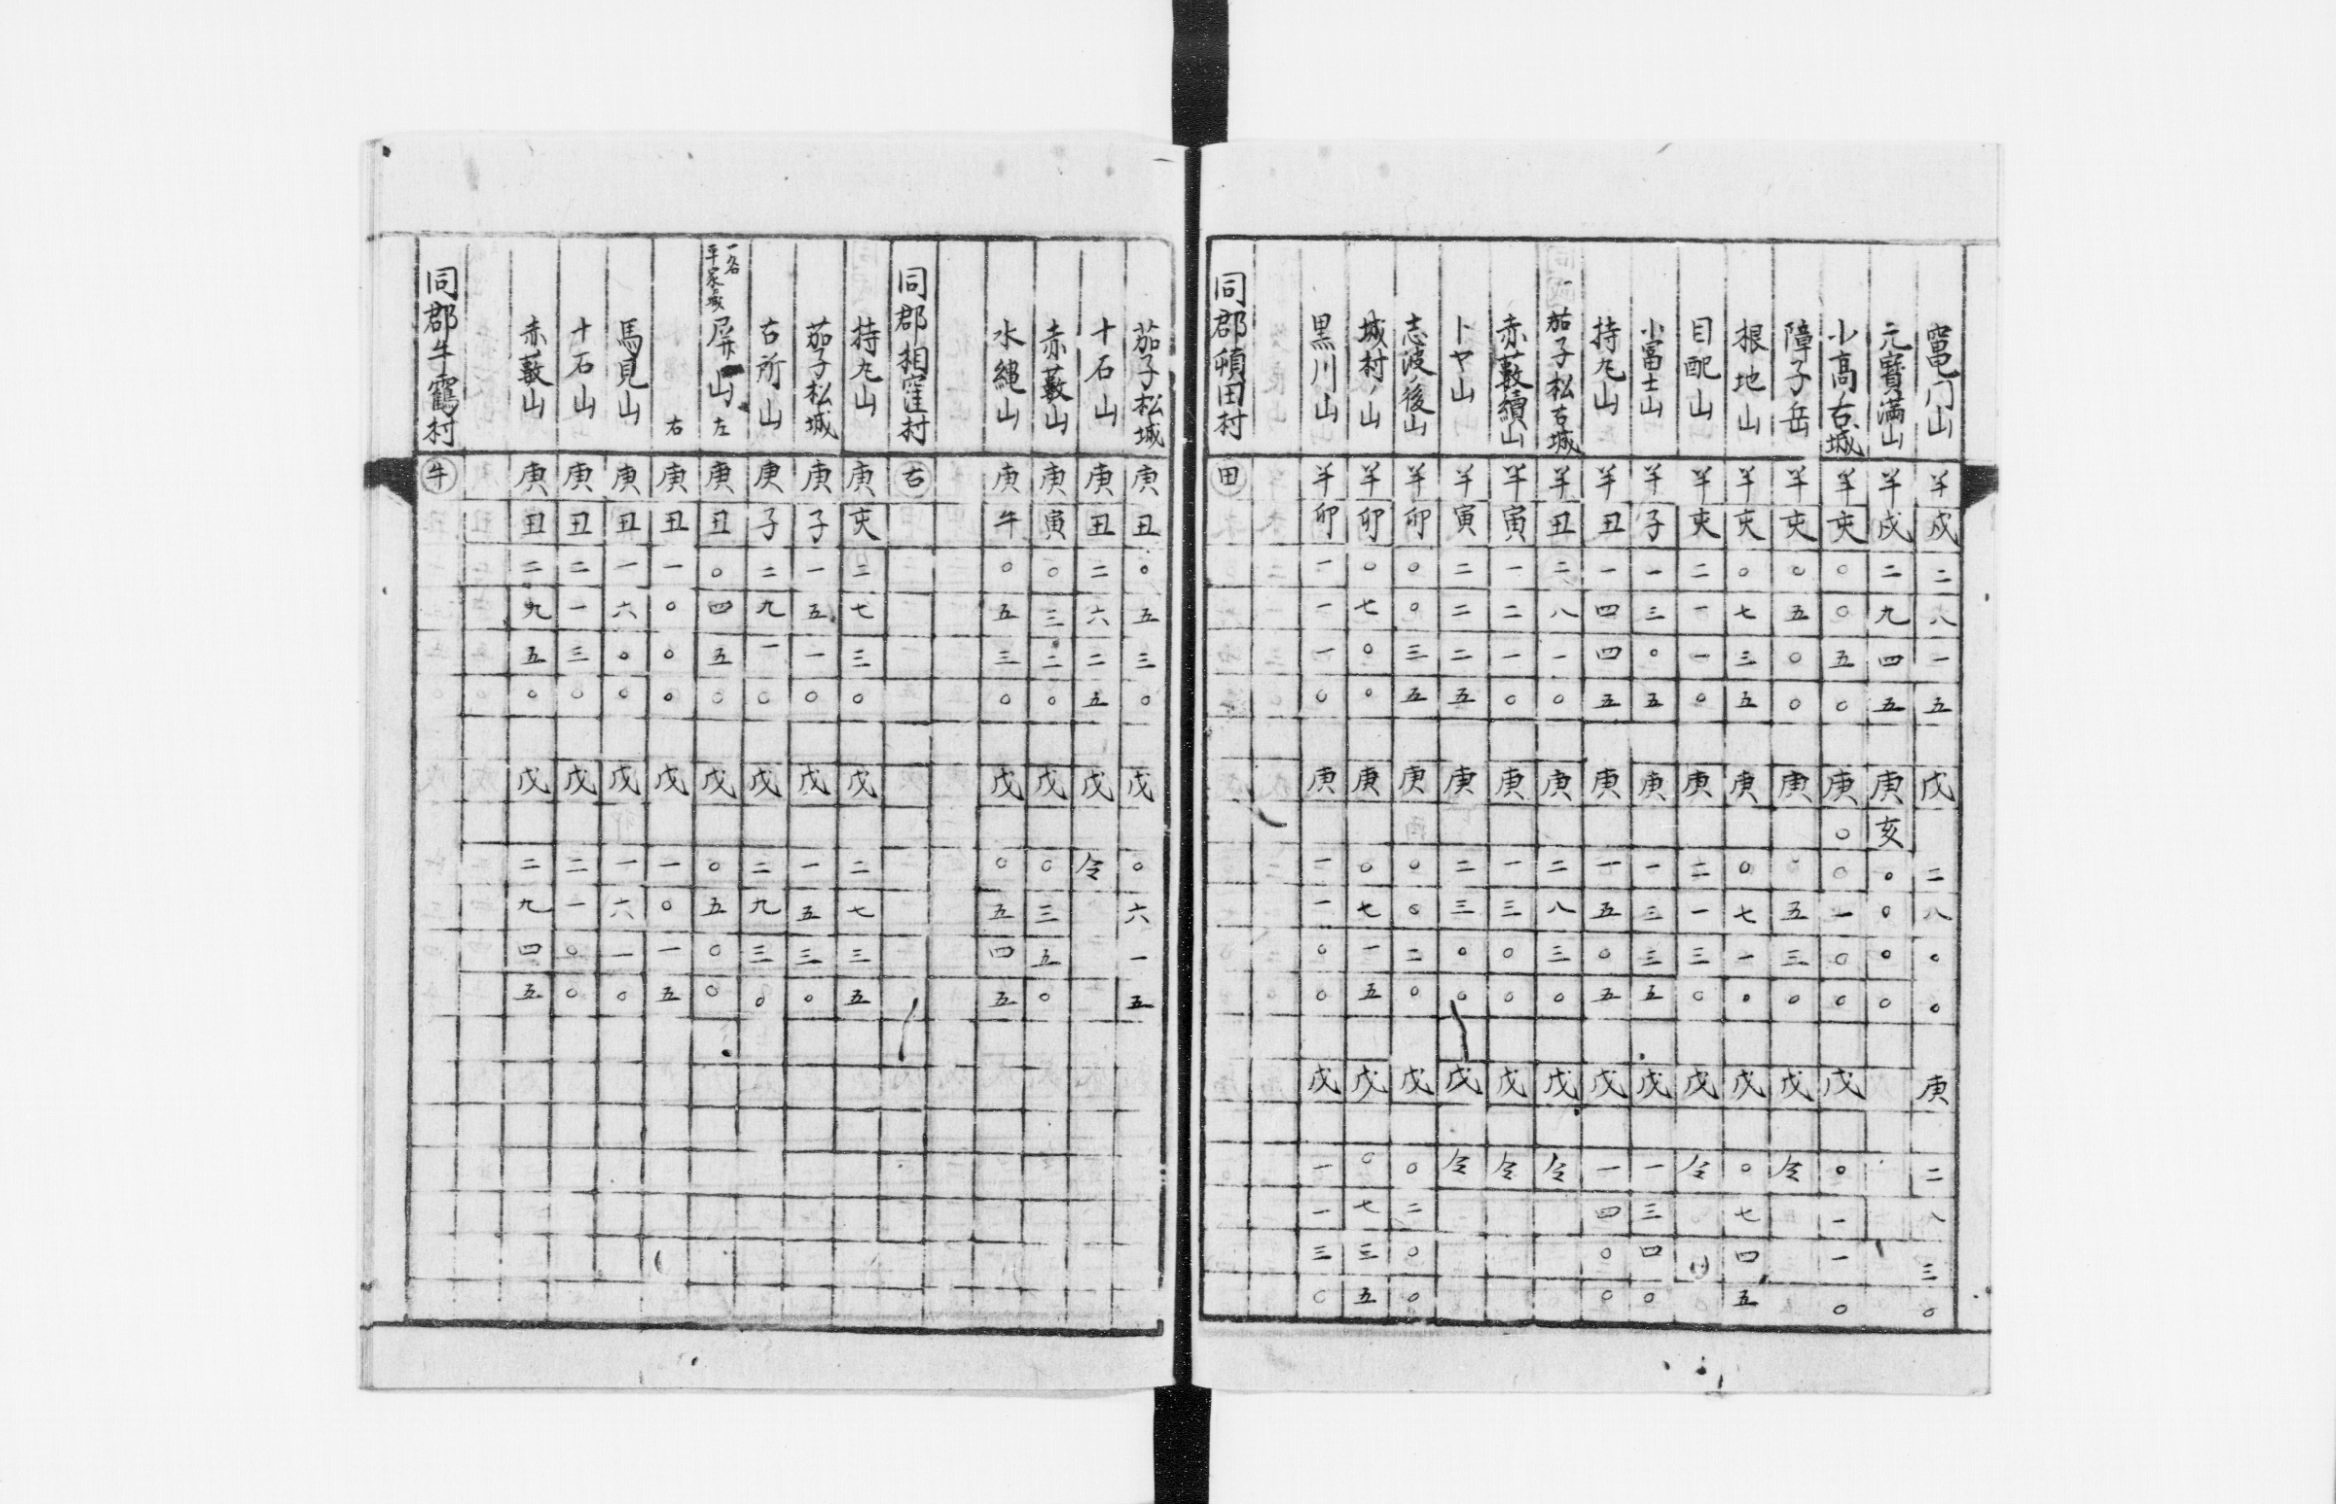 竈門山 羊 戌 二 八 一 五 戊 二 八 〇 〇 庚 二 八 三 〇
元寶滿山 羊 戌 二 九 四 五 庚 亥 〇 〇 〇 〇
小高ノ古城 羊 亥 〇 〇 五 〇 庚 〇 〇 一 〇 〇 戊 〇 一 一 〇
障子岳 羊 亥 〇 五 〇 〇 庚 〇 五 三 〇 戊 令
根地山 羊 亥 〇 七 三 五 庚 〇 七 一 〇 戊 〇 七 四 五
目配山 羊 亥 二 一 一 〇 庚 二 一 三 〇 戊 令
小富士山 羊 子 一 三 〇 五 庚 一 三 三 五 戊 一 三 四 〇
持丸山 羊 丑 一 四 四 五 庚 一 五 〇 五 戊 一 四 〇 〇
茄子松古城 羊 丑 二 八 一 〇 庚 二 八 三 〇 戊 令
赤藪續山 羊 寅 一 二 一 〇 庚 一 三 〇 〇 戊 令
トヤ山 羊 寅 二 二 二 五 庚 二 三 〇 〇 戊 令
志波ノ後山 羊 卯 〇 〇 三 五 庚 〇 〇 二 〇 戊 〇 二 〇 〇
城村ノ山 羊 卯 〇 七 〇 〇 庚 〇 七 一 五 戊 〇 七 三 五
黒川山 羊 卯 一 一 一 〇 庚 一 一 〇 〇 戊 一 一 三 〇
同郡頓田村 田
茄子松城 庚 丑 〇 五 三 〇 戊 〇 六 一 五
十石山 庚 丑 二 六 二 五 戊 令
赤藪山 庚 寅 〇 三 二 〇 戊 〇 三 五 〇
水縄山 庚 午 〇 五 三 〇 戊 〇 五 四 五
同郡相窪村 右
持丸山 庚 亥 二 七 三 〇 戊 二 七 三 五
茄子松城 庚 子 一 五 一 〇 戊 一 五 三 〇
古所山 庚 子 二 九 一 〇 戊 二 九 三 〇
一名平家城 屏山 左 庚 丑 〇 四 五 〇 戊 〇 五 〇 〇
右 庚 丑 一 〇 〇 〇 戊 一 〇 一 五
馬見山 庚 丑 一 六 〇 〇 戊 一 六 一 〇
十石山 庚 丑 二 一 三 〇 戊 二 一 〇 〇
赤藪山 庚 丑 二 九 五 〇 戊 二 九 四 五
同郡牛鶴村 牛